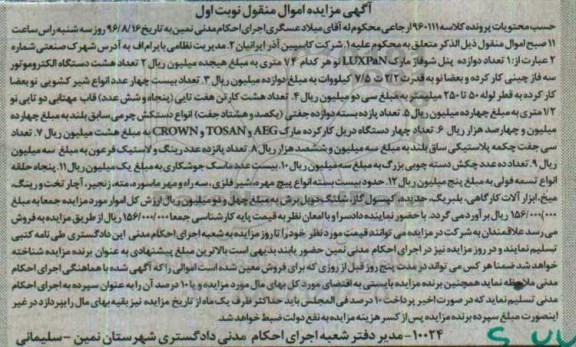 آگهی مزایده اموال منقول نوبت اول
حسب محتویات پرونده کلاسه ۹۶۰۱۱۱ ارجاعی محکوم له آقای میلاد عسگری اجرای احکام مدنی نمین به تاریخ ۹۶/۸/۱۶ روز سه شنبه راس ساعت
۱۱ صبح اموال منقول ذیل الذکر متعلق به محکوم علیه ۱. شرکت کاسپین آذر ایرانیان ۲. مدیریت نظامی با پرام اف به آدرس شهرک صنعتی شماره
۲ عبارت از: ۱ تعداد دوازده پنل شوفاژ مارک LUXPaN نو هر کدام ۷۴ متری به مبلغ هیجده میلیون ریال ۲ تعداد هشت دستگاه الکتروموتور
سه فاز چینی کار کرده و بعضا نو به قدرت ۲/۲ تا ۷/۵ کیلووات به مبلغ دوازده میلیون ریال ۳. تعداد بیست چهار عدد انواع شیر کشویی نو بعضا
کار کرده به قطر لوله ۵۰ تا ۲۵۰ میلیمتر به مبلغ سی دو میلیون ریال ۴. تعداد هشت کارتن هفت تایی (پنجاه و شش عدد) قاب مهتابی دو تایی نو
۱/۲ متری به مبلغ چهارده میلیون ریال ۵. تعداد یازده بسته دوازده جفتی (یکصد و هشتاد جفت) انواع دستکش چرمی سابق بلند به مبلغ چهارده
میلیون و چهارصد هزار ریال ۶. تعداد چهار دستگاه دریل کار کرده مارک AEG و TOSAN و CROWN به مبلغ هشت میلیون ریال ۷. تعداد
سی جفت چکمه پلاستیکی ساق بلند به مبلغ سه میلیون و ششصد هزار ریال ۸. تعداد پانزده عدد رینگ و لاستیک فرغون به مبلغ سه میلیون
ریال ۹. تعداد ده عدد چکش دسته چوبی بزرگ به مبلغ سه میلیون ریال ۱۰. بیست عدد ماسک جوشکاری به مبلغ یک میلیون ریال ۱۱. پنجاه حلقه
انواع تسمه فولی به مبلغ پنج میلیون ریال ۱۲. حدود بیست بسته انواع پیچ مهره، شیر فلزی، سه راه و مهر ماسوره، مته، زنجیر، آچار تخت و رینگ،
میخ، ابزار آلات کارگاهی، بلبرینگ، حدیده، کپسول گاز، شلنگ دوبل برش به مبلغ چهل و دو میلیون ریال ارزش کل اموال مورد مزایده جمعا به مبلغ
۱۵۶/۰۰۰/۰۰۰ ریال برآورد می گردد. با حضور نماینده دادسرا و با امعان نظر به قیمت پایه کارشناسی جمعا ۱۵۶/۰۰۰/۰۰۰ ریال از طریق مزایده به فروش
می رسد علاقمندان به شرکت در مزایده می توانند قیمت مورد نظر خود را تا روز مزایده به شعبه اجرای احکام مدنی این دادگستری طی نامه کتبی
تسلیم نمایند و در روز مزایده نیز در اجرای احکام مدنی نمین حضور یابند بدیهی است بالاترین مبلغ پیشنهادی به عنوان برنده مزایده شناخته
خواهد شد ضمنا هر کس می تواند در مدت پنج روز قبل از روزی که برای فروش معین شده است اموالی را که آگهی شده با هماهنگی اجرای احکام
مدنی ملاحظه نماید همچنین برنده مزایده بایستی به اقتضای مورد کل بهای مال مورد مزایده و یا ۱۰ درصد آن را به عنوان سپرده به اجرای احکام
مدنی تسلیم نماید که در صورت اخیر پرداخت ۱۰ درصد فی المجلس باید حداکثر ظرف یک ماه از تاریخ مزایده نیز بقیه بهای مال را بپردازد در غیر
اینصورت مبلغ سپرده برنده مزایده پس از کسر هزینه مزایده به نفع دولت ضبط خواهد شد.
۱۰۰۲۴- مدیر دفتر شعبه اجرای احکام مدنی دادگستری شهرستان نمین - سلیمانی